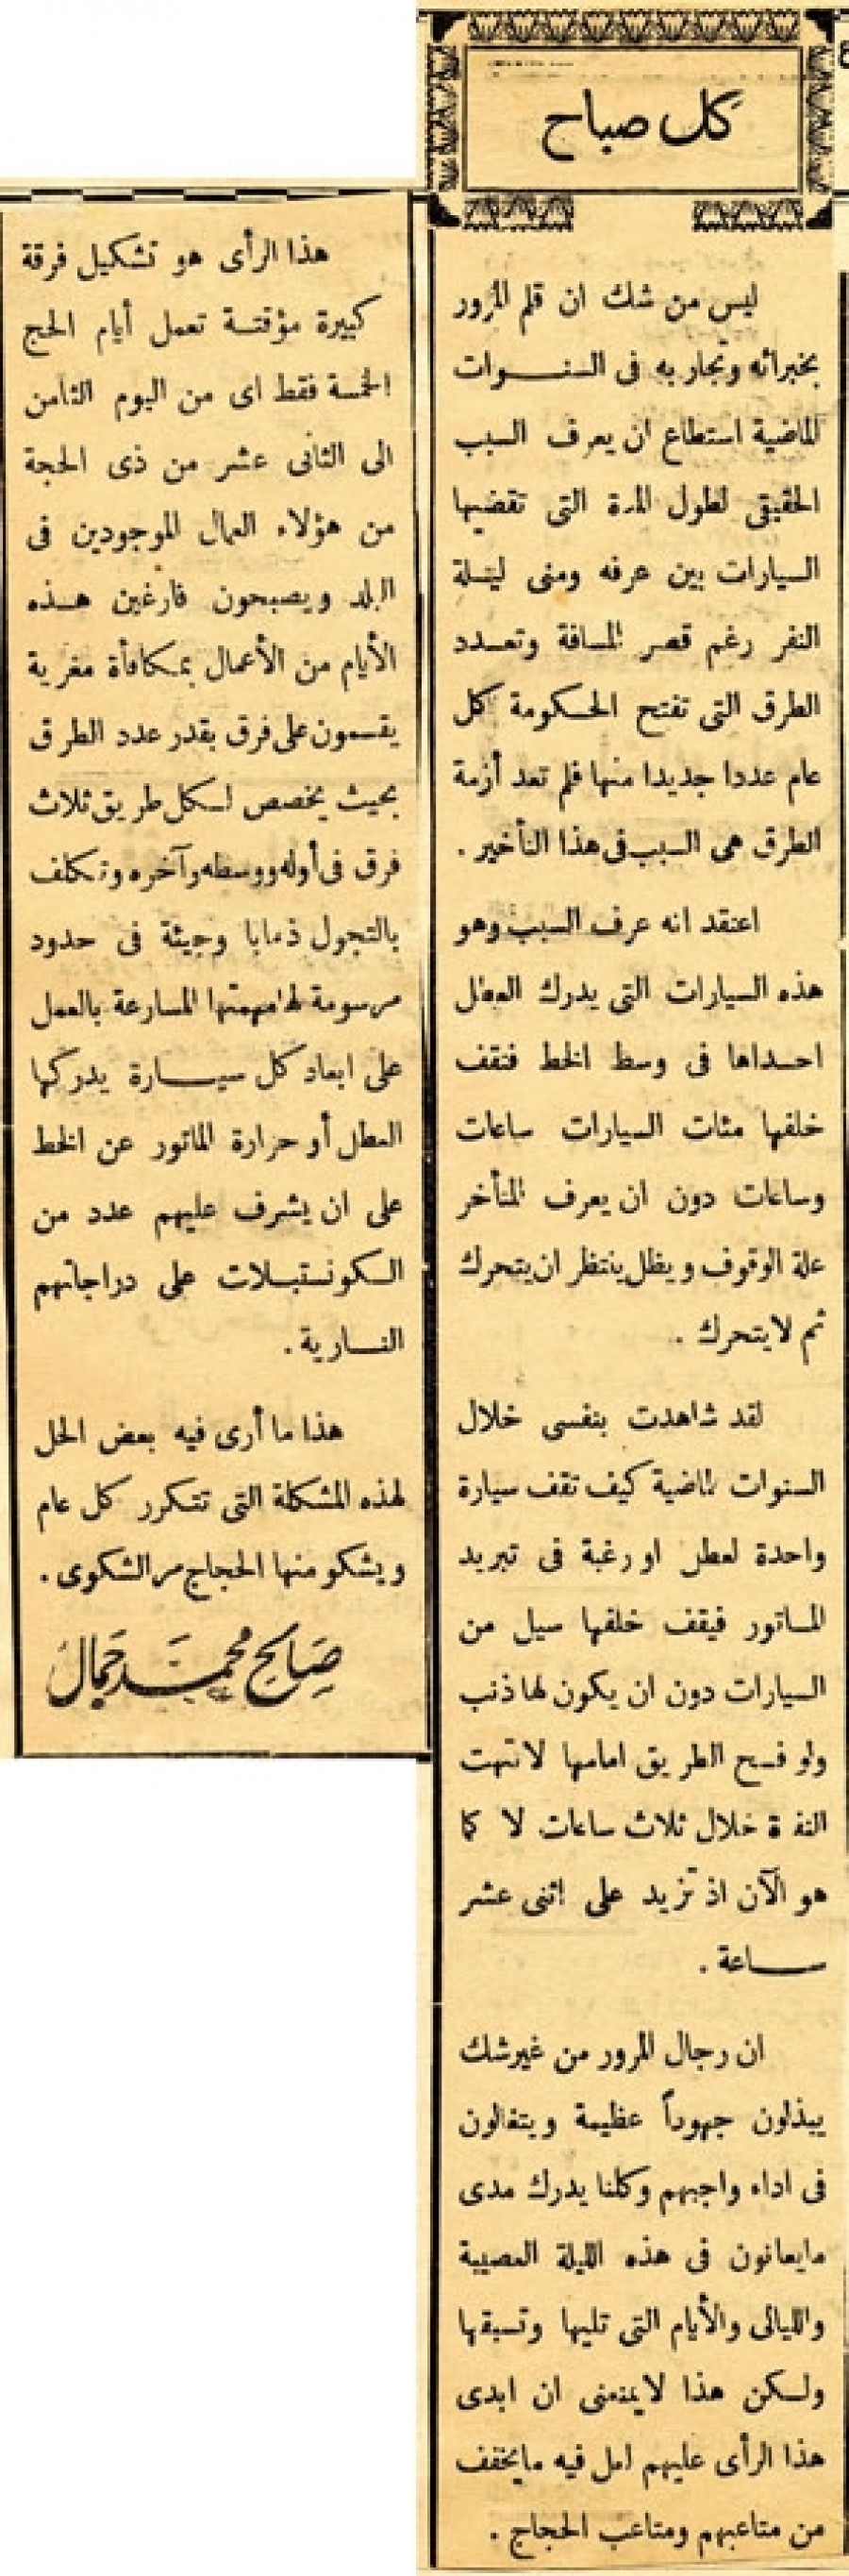 كل صباح
ليس من شك ان قلم المرور
بخبرائه وتجاربه فى السنوات
الماضية استطاع ان يعرف السبب
الحقيقى لطول المدة التى تقضيها
السيارات بين عرفه ومنى ليلة
النفر رغم قصر المسافة وتعدد
الطرق التى تفتح الحكومة كل
عام عددا جديدا منها فلم تعد أزمة
الطرق هى السبب فى هذا التأخير .
اعتقد انه عرف السبب وهو
هذه السيارات التى يدرك العطل
احداها فى وسط الخط فتقف
خلفها مئات السيارات ساعات
وساعات دون ان يعرف المتأخر
علة الوقوف ويظل ينتظر ان يتحرك
ثم لا يتحرك .
لقد شاهدت بنفسى خلال
السنوات الماضية كيف تقف سيارة
واحدة لعطل او رغبة فى تبريد
الماتور فيقف خلفها سيل من
السيارات دون ان يكون لها ذنب
ولو فسح الطريق امامها لانتهت
النفرة خلال ثلاث ساعات لا كما
هو الآن اذ تزيد على اثنى عشر
ساعة .
ان رجال المرور من غير شك
يبذلون جهوداً عظيمة ويتفانون
فى اداء واجبهم وكلنا يدرك مدى
مايعانون فى هذه الليلة العصيبة
والليالى والأيام التى تليها وتسبقها
ولكن هذا لايمنعنى ان ابدى
هذا الرأى عليهم لعل فيه مايخفف
من متاعبهم ومتاعب الحجاج .
هذا الرأى هو تشكيل فرقة
كبيرة مؤقتة تعمل أيام الحج
الخمسة فقط اى من اليوم الثامن
الى الثانى عشر من ذى الحجة
من هؤلاء العمال الموجودين فى
البلد ويصبحون فارغين هذه
الأيام من الأعمال بمكافأة مغرية
يقسمون على فرق بقدر عدد الطرق
بحيث يخصص لكل طريق ثلاث
فرق فى أوله ووسطه وآخره وتكلف
بالتجول ذهابا وجيئة فى حدود
مرسومة لها مهمتها المسارعة بالعمل
على ابعاد كل سيارة يدركها
العطل أو حرارة الماتور عن الخط
على ان يشرف عليهم عدد من
الكونستبلات على دراجاتهم
النارية .
هذا ما أرى فيه بعض الحل
لهذه المشكلة التى تتكرر كل عام
ويشكو منها الحجاج مر الشكوى .
صالح محمد جمال